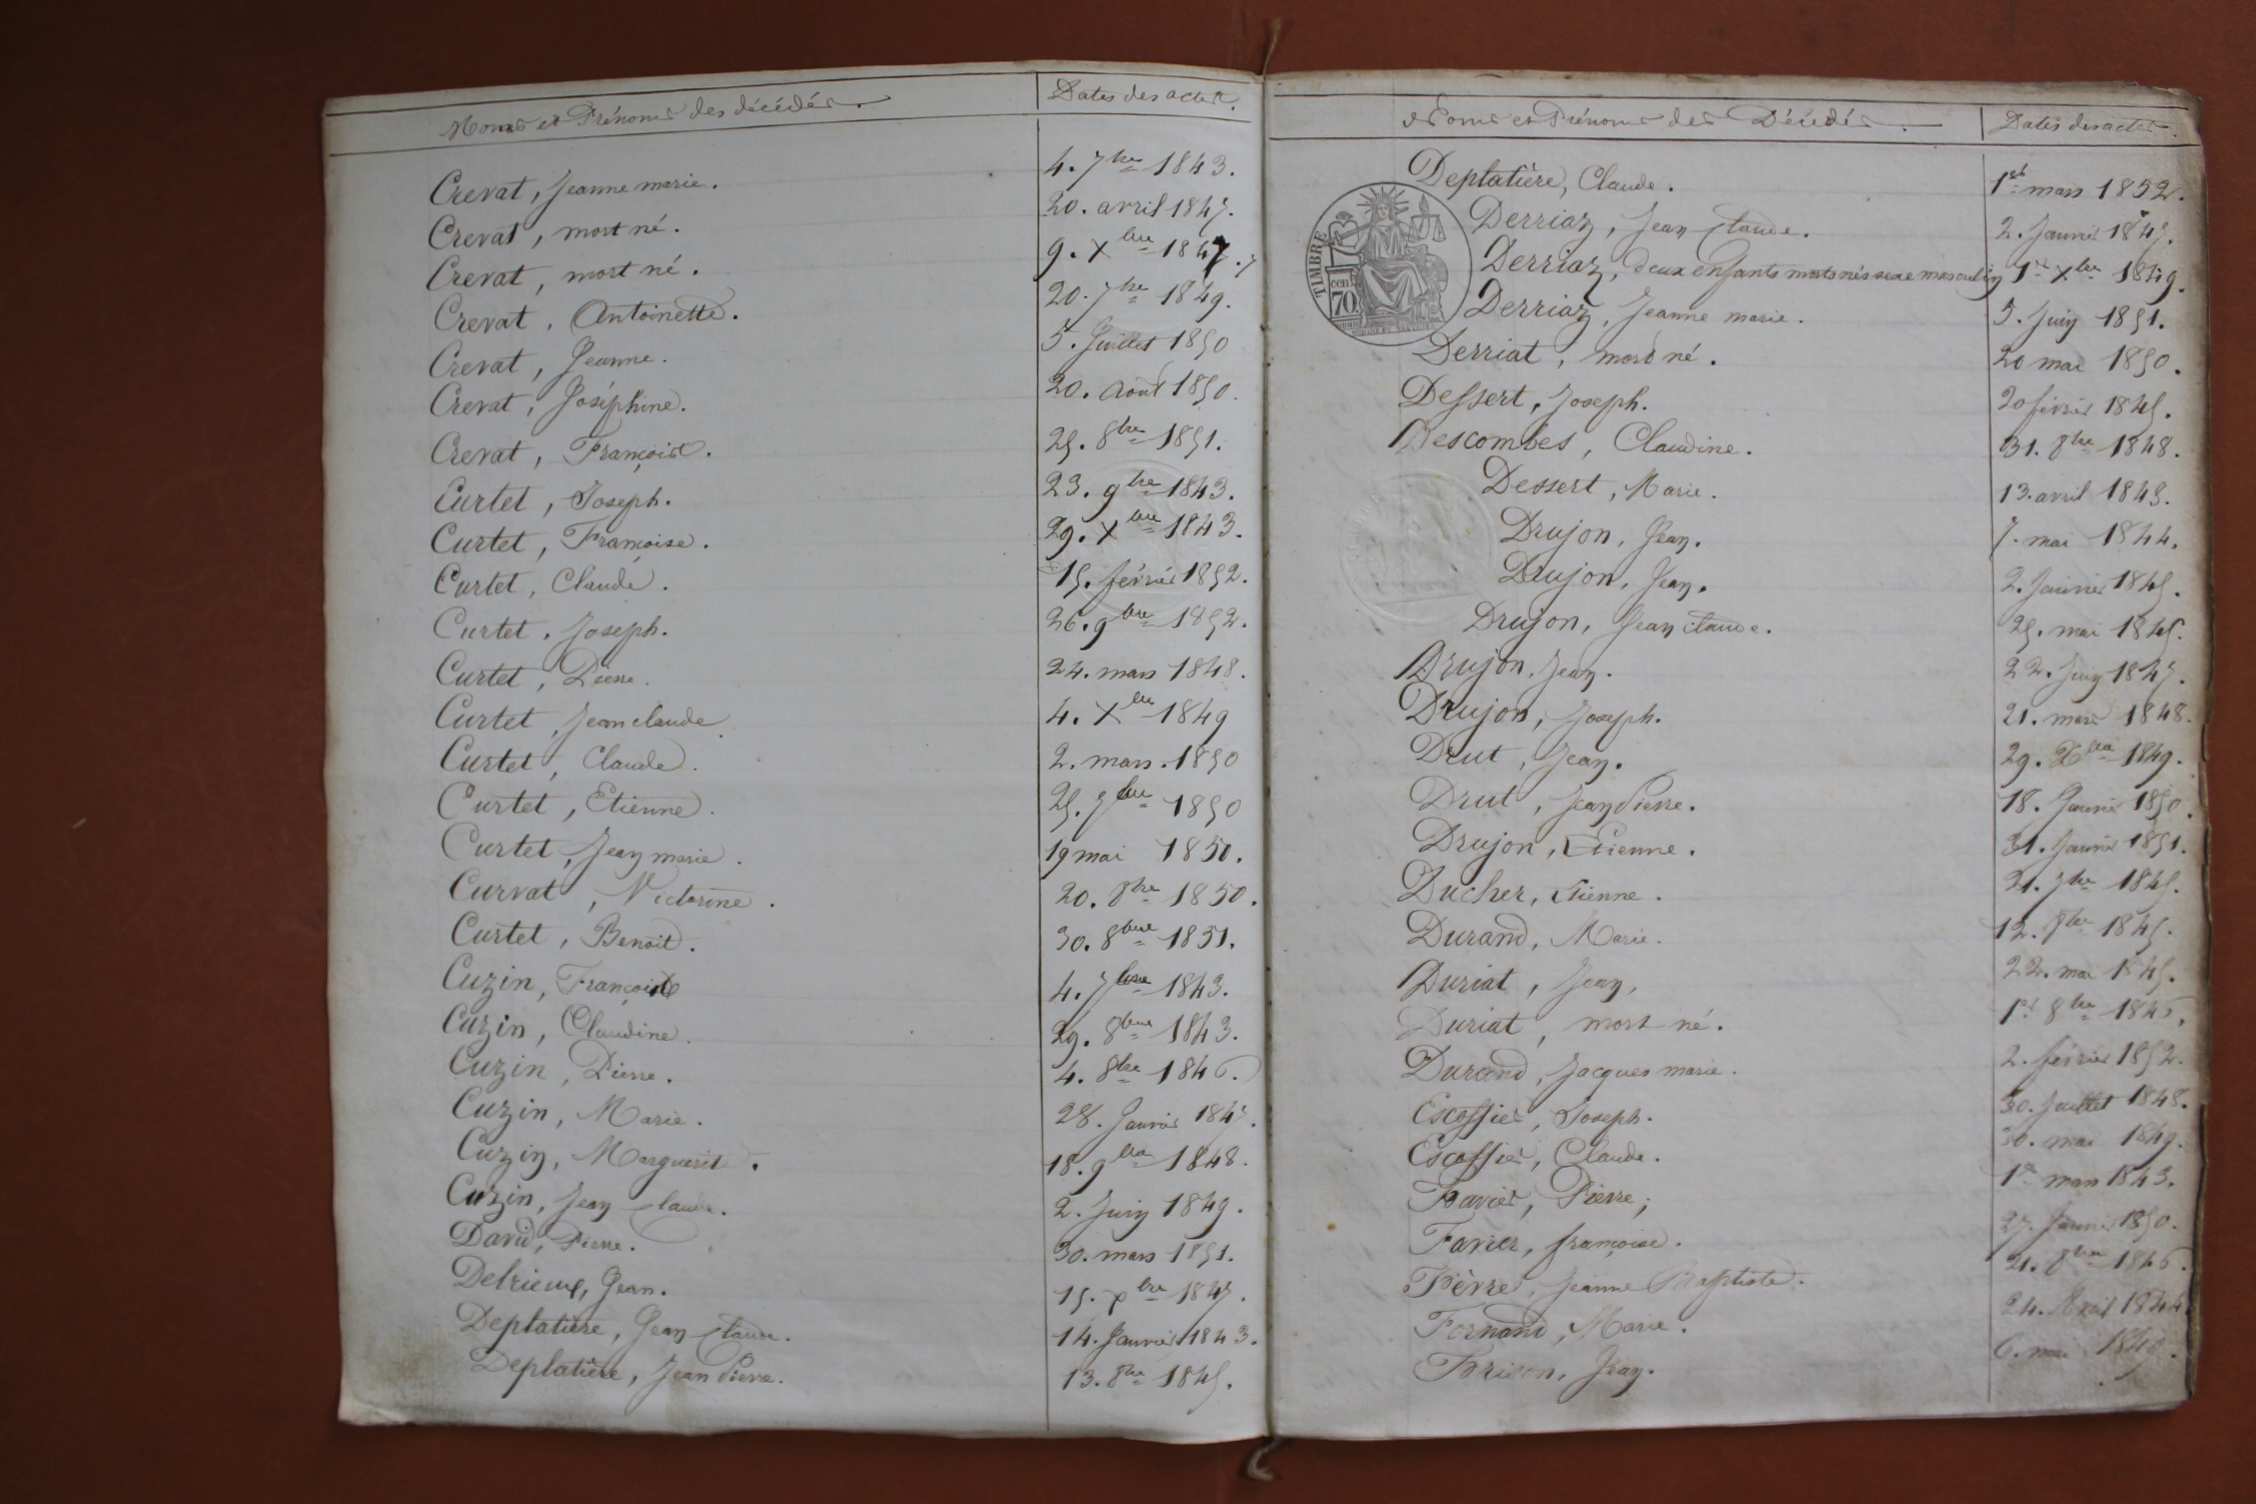 Noms et Prénoms des décédés.
Dates des actes.
Crevat, Jeanne marie.
4. 7bre 1843.
Crevat, mort né.
20. avril 1847.
Crevat, mort né.
9. Xbre 1847.7
Crevat, Antoinette.
20. 7bre 1849.
Crevat, Jeanne.
5. Juillet 1850
Crevat, Joséphine.
20. Août 1850.
Crevat, François.
25. 8bre 1851.
Curtet, Joseph.
23. 9bre 1843.
Curtet, Françoise.
29. Xbre 1843.
Curtet, Claude.
15. février 1852.
Curtet, Joseph.
26. 9bre 1852.
Curtet, Pierre.
24. mars 1848.
Curtet, Jean claude
4. Xbre 1849
Curtet, Claude.
2. mars. 1850
Curtet, Etienne.
25. 7bre 1850
Curtet, Jean marie.
19 mai 1850.
Curvat, Victorine.
20. 8bre 1850.
Curtet, Benoit.
30. 8bre 1851.
Cuzin,
4. 7bre 1843.
Cuzin, Claudine.
29. 8bre 1843.
Cuzin, Pierre.
4. 8bre 1846.
Cuzin, Marie.
28. Janvier
Cuzin, Marguerite.
18. 9bre 1848.
Cuzin, Jean Claude.
2. Juin 1849.
David, Pierre.
30. mars 1851.
Delrieux, Jean.
15.
Deplatière, Jean Claude.
14. Janvier 1843.
Deplatière, Jean Pierre.
13. 8bre 1845.
Noms et Prénoms des Décédés.
Dates des actes.
TIMBRE
cen
70
Deplatière, Claude.
1er mars 1852.
Derriaz, Jean Claude.
2. Janvier
Derriaz, deux enfants morts nés sexe masculin
1er Xbre 1849.
Derriaz, Jeanne marie.
5. Juin 1851.
Derriat, mort né.
20 mai 1850.
Dessert, Joseph.
20 février 1845.
Descombes, Claudine.
31. 8bre 1848.
Dessert, Marie.
13. avril 1843.
Drujon, Jean.
7. mai 1844.
Drujon, Jean.
2. Janvier 1845.
Drujon, Jean claude.
25. mai 1845.
Drujon, Jean.
22. Juin 1847.
Drujon, Joseph.
21. mars 1848.
Drut, Jean.
29. Xbre 1849.
Drut, Jean Pierre.
18. Janvier 1850.
Drujon, Etienne.
31. Janvier 1851.
Ducher, Etienne.
21. 7bre 1845.
Durand, Marie.
12. 8bre 1845.
Duriat, Jean,
22. mai 1845.
Duriat, mort né.
1er 8bre
Durand, Jacques marie.
2. février 1852.
Escoffier, Joseph.
30. Juillet 1848.
Escoffier, Claude.
30. mai 1849.
Favier, Pierre;
1er mars 1843.
Favier, françoise.
27. Janvier 1850.
Fèvre, Jeanne Baptiste.
21. 8bre 1846.
Fornand, Marie.
24. Avril 1844
Jean.
6. mai